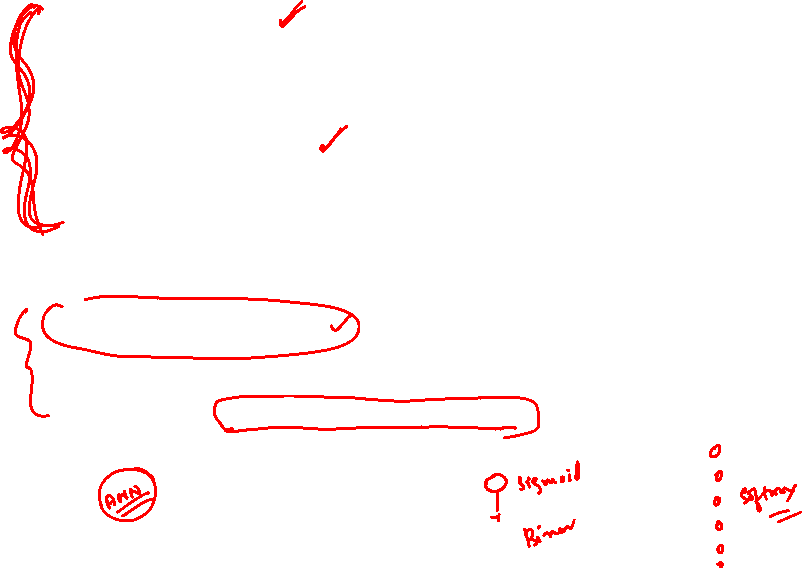 ANN
sigmoid
Binary
softmax